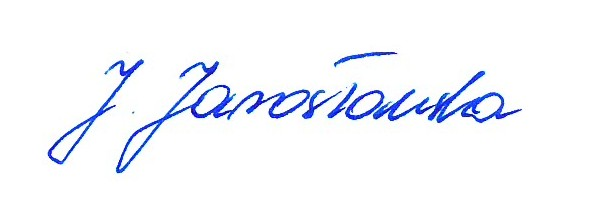 J. Jarosławska